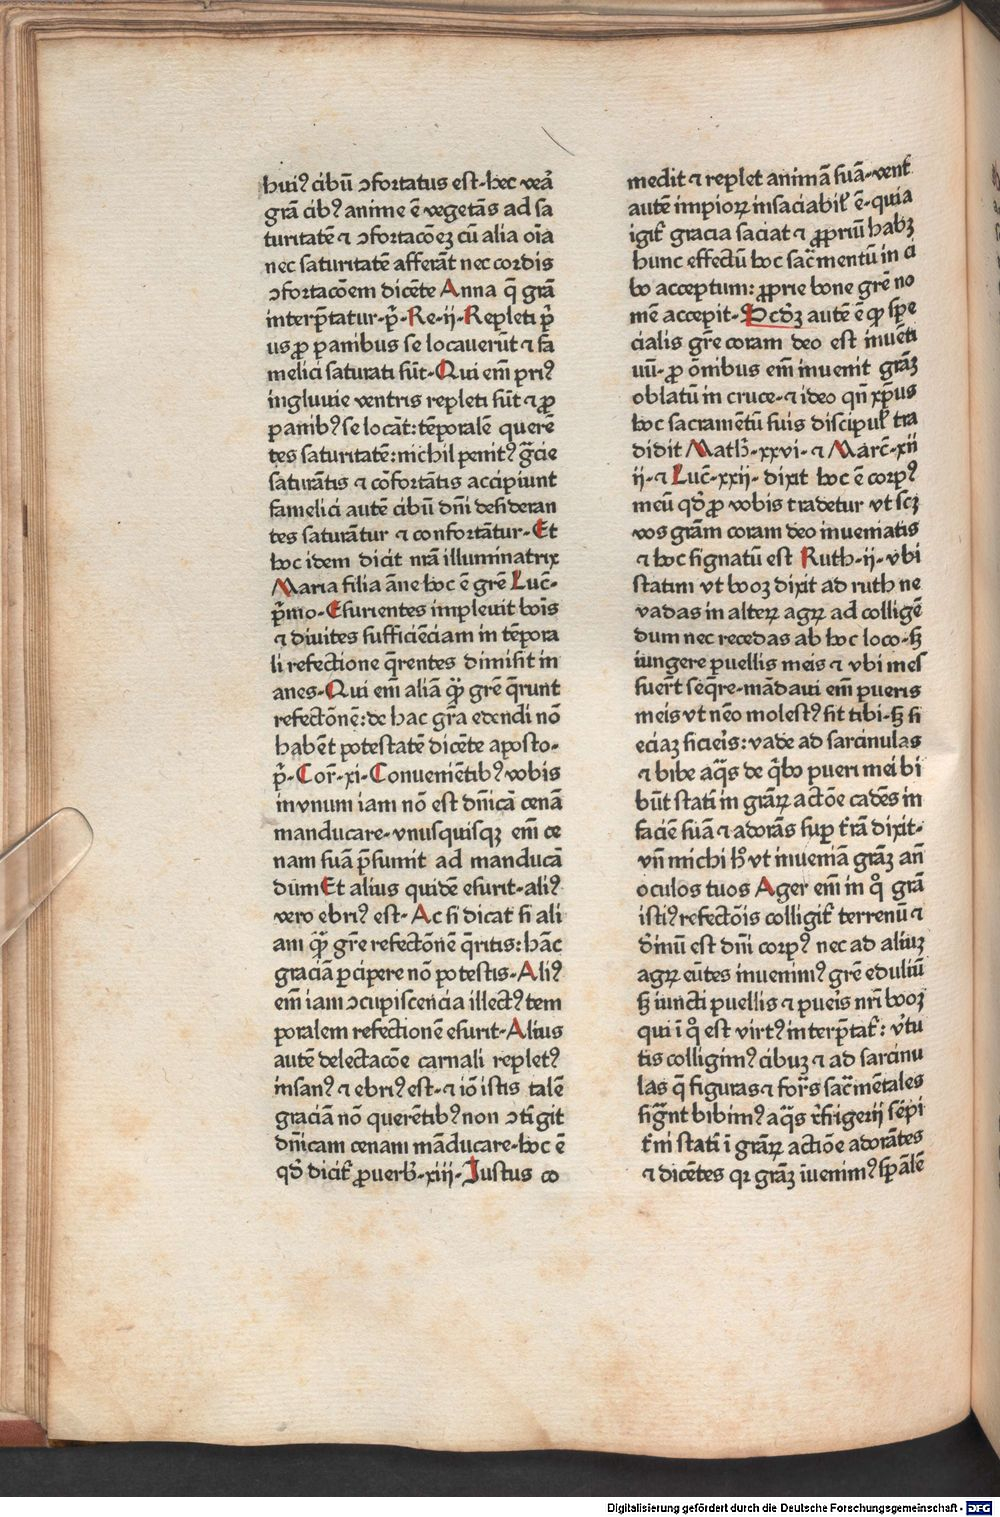 huiꝰ cibū ɔfortatus est-hec veā
grā cibꝰ anime ē vegetās ad sa
turitatē ⁊ ɔfortacōeȝ cū alia oīa
nec saturitatē afferāt nec cordis
ɔfortacōem dicēte Anna q̄ grā
interp̄tatur-p̄-Re-ii-Repleti p̄
us ꝓ panibus se locauerūt ⁊ fa
melici saturati sūt-Qui em̄ priꝰ
ingluuie ventris repleti sūt ⁊ ꝓ
panibꝰ se locāt: tēporalē querē
tes saturitatē: nichil penitꝰ gr̄cie
saturātis ⁊ cōfortātis accipiunt
famelici autē cibū dn̄i desideran
tes saturātur ⁊ confortātur-Et
hoc idem dicit nr̄a illuminatrix
Maria filia āne hoc ē gr̄e Luc̄-
p̄mo-Esurientes impleuit bois̄
⁊ diuites sufficiēciam in tēpora
li refectione q̄rentes dimisit in
anes-Qui em̄ aliā qꝫ̄ gr̄e q̄runt
refectōnē: de hac gr̄a edendi nō
habēt potestatē dicēte aposto-
p̄-Cor̄-xi-Conueniētibꝰ vobis
in vnum iam nō est dn̄icā cenā
manducare-vnusquisqȝ em̄ ce
nam suā p̄sumit ad manducā
dūm Et alius quidē esurit-aliꝰ
vero ebriꝰ est-Ac si dicat si ali
am qꝫ̄ gr̄e refectōnē q̄ritis: hāc
graciā ꝑcipere nō potestis-Aliꝰ
em̄ iam ɔcupiscencia illectꝰ tem
poralem refectionē esurit-Alius
autē delectacōe carnali repletꝰ
insanꝰ ⁊ ebriꝰ est-⁊ iō istis talē
graciā nō querētibꝰ non ɔtīgit
dn̄icam cenam māducare-hoc ē
qd̄ dicit᷑ ꝓuerb̄-xiii-Justus co
medit ⁊ replet animā suā-vent᷑
autē impioꝝ insaciabil᷑ ē-quia
igit᷑ gracia saciat ⁊ ꝓpriū habȝ
hunc effectū hoc sac̄mentū in ci
bo acceptum: ꝓprie bone gr̄e no
mē accepit-Scd̄ȝ autē ē ꝙ spe
cialis gr̄e coram deo est inuēti
uū-ꝓ ōnibus em̄ inuenit grāȝ
oblatū in cruce-⁊ ideo qn̄ xp̄us
hoc sacramētū suis discipul᷑ tra
didit Math̄-xxvi-⁊ Marc̄-xii
ii-⁊ Luc̄-xxii-dixit hoc ē corpꝰ
meū qd̄ ꝓ vobis tradetur vt scȝ
vos grām coram deo inueniatis
⁊ hoc signatū est Ruth-ii-vbi
statim vt booȝ dixit ad ruth ne
vadas in alteꝝ agꝝ ad colligē
dum nec recedas ab hoc loco-sȝ
iungere puellis meis ⁊ vbi mes
suer̄t seq̄re-mādaui em̄ pueris
meis vt nēo molestꝰ sit tibi-sȝ si
eciaȝ sicieis̄: vade ad sarcinulas
⁊ bibe aq̄s de q̄bo pueri mei bi
būt stati in grāꝝ actōe cadēs in
faciē suā ⁊ adorās suꝑ t̄rā dixit-
vn̄ michi h̄ vt inueniā grāȝ an̄
oculos tuos Ager em̄ in qͦ grā
istiꝰ refectōis colligit᷑ terrenū ⁊
diuinū est dn̄i corpꝰ nec ad aliuȝ
agꝝ eūtes inuenimꝰ gr̄e eduliū
sȝ iuncti puellis ⁊ pueis̄ nr̄i booȝ
qui ī qͦ est virtꝰ interp̄tat᷑: vͬtu
tis colligimꝰ cibuȝ ⁊ ad sarcinu
las q̄ figuras ⁊ for̄s sac̄mētales
sigͣnt bibimꝰ aq̄s r̄frigerii sēpi
t᷑ni stati ī grāꝝ actiōe adorātes
⁊ dicētes qꝛ grāȝ īuenimꝰ sp̄alē
Digitalisierung gefördert durch die Deutsche Forschungsgemeinschaft - DFG